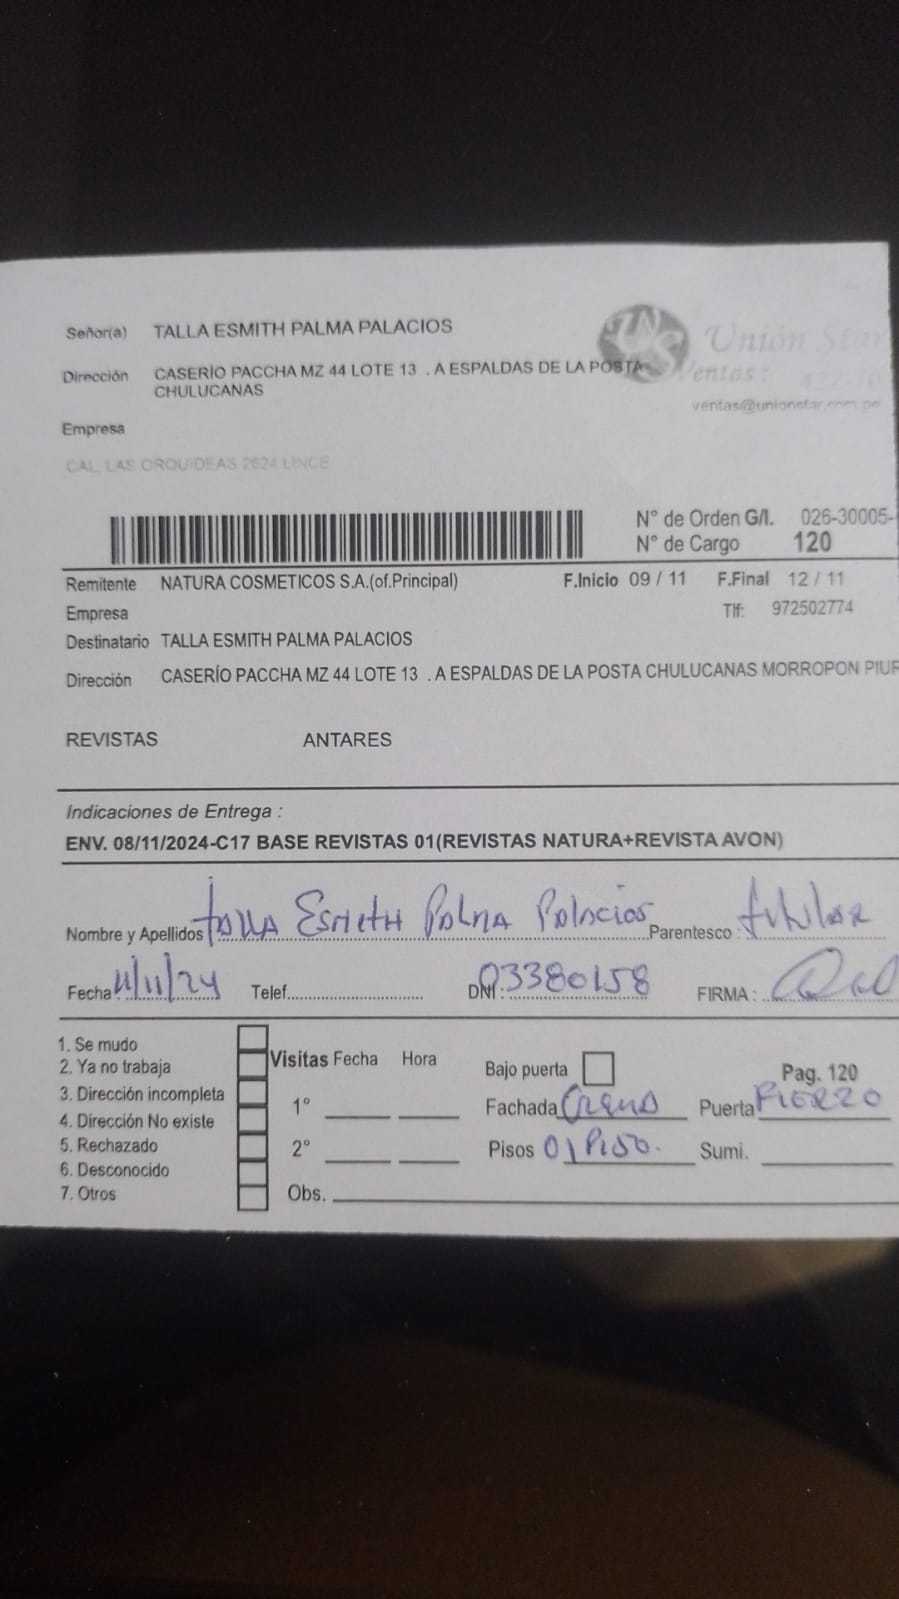 Señor(a) TALLA ESMITH PALMA PALACIOS
Unión Star
Dirección CASERÍO PACCHA MZ 44 LOTE 13 . A ESPALDAS DE LA POSTA
CHULUCANAS
Ventas:
ventas@unionstar.com.pe
Empresa
CAL. LAS ORQUIDEAS 2624 LINCE
N° de Orden G/I. 026-30005-
N° de Cargo 120
Remitente NATURA COSMETICOS S.A.(of.Principal) F.Inicio 09 / 11 F.Final 12 / 11
Empresa Tlf: 972502774
Destinatario TALLA ESMITH PALMA PALACIOS
Dirección CASERÍO PACCHA MZ 44 LOTE 13 . A ESPALDAS DE LA POSTA CHULUCANAS MORROPON PIUR
REVISTAS ANTARES
Indicaciones de Entrega :
ENV. 08/11/2024-C17 BASE REVISTAS 01(REVISTAS NATURA+REVISTA AVON)
Nombre y Apellidos Talla Esmith Palma Palacios Parentesco : titular
Fecha 11/11/24 Telef. DNI : 03380158 FIRMA :
1. Se mudo
2. Ya no trabaja
3. Dirección incompleta
4. Dirección No existe
5. Rechazado
6. Desconocido
7. Otros
Visitas Fecha Hora
1°
2°
Obs.
Bajo puerta Pag. 120
Fachada Crema Puerta FIERRO
Pisos 01 PISO. Sumi.